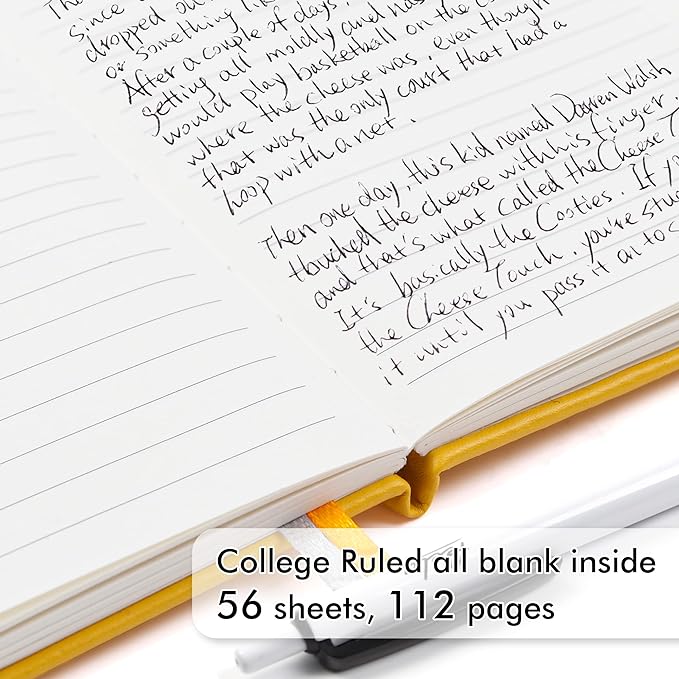 Since
dropped out
or something like
After a couple of days,
getting all moldly and nas
would play basketball on the c
where the cheese was, even though
that was the only court that had a
hoop with a net.
Then one day, this kid named Darren Walsh
touched the cheese with his finger,
and that's what called the Cheese T
It's basically the Cooties. If yo
the Cheese Touch, you're stu
it until you pass it on to s
College Ruled all blank inside
56 sheets, 112 pages